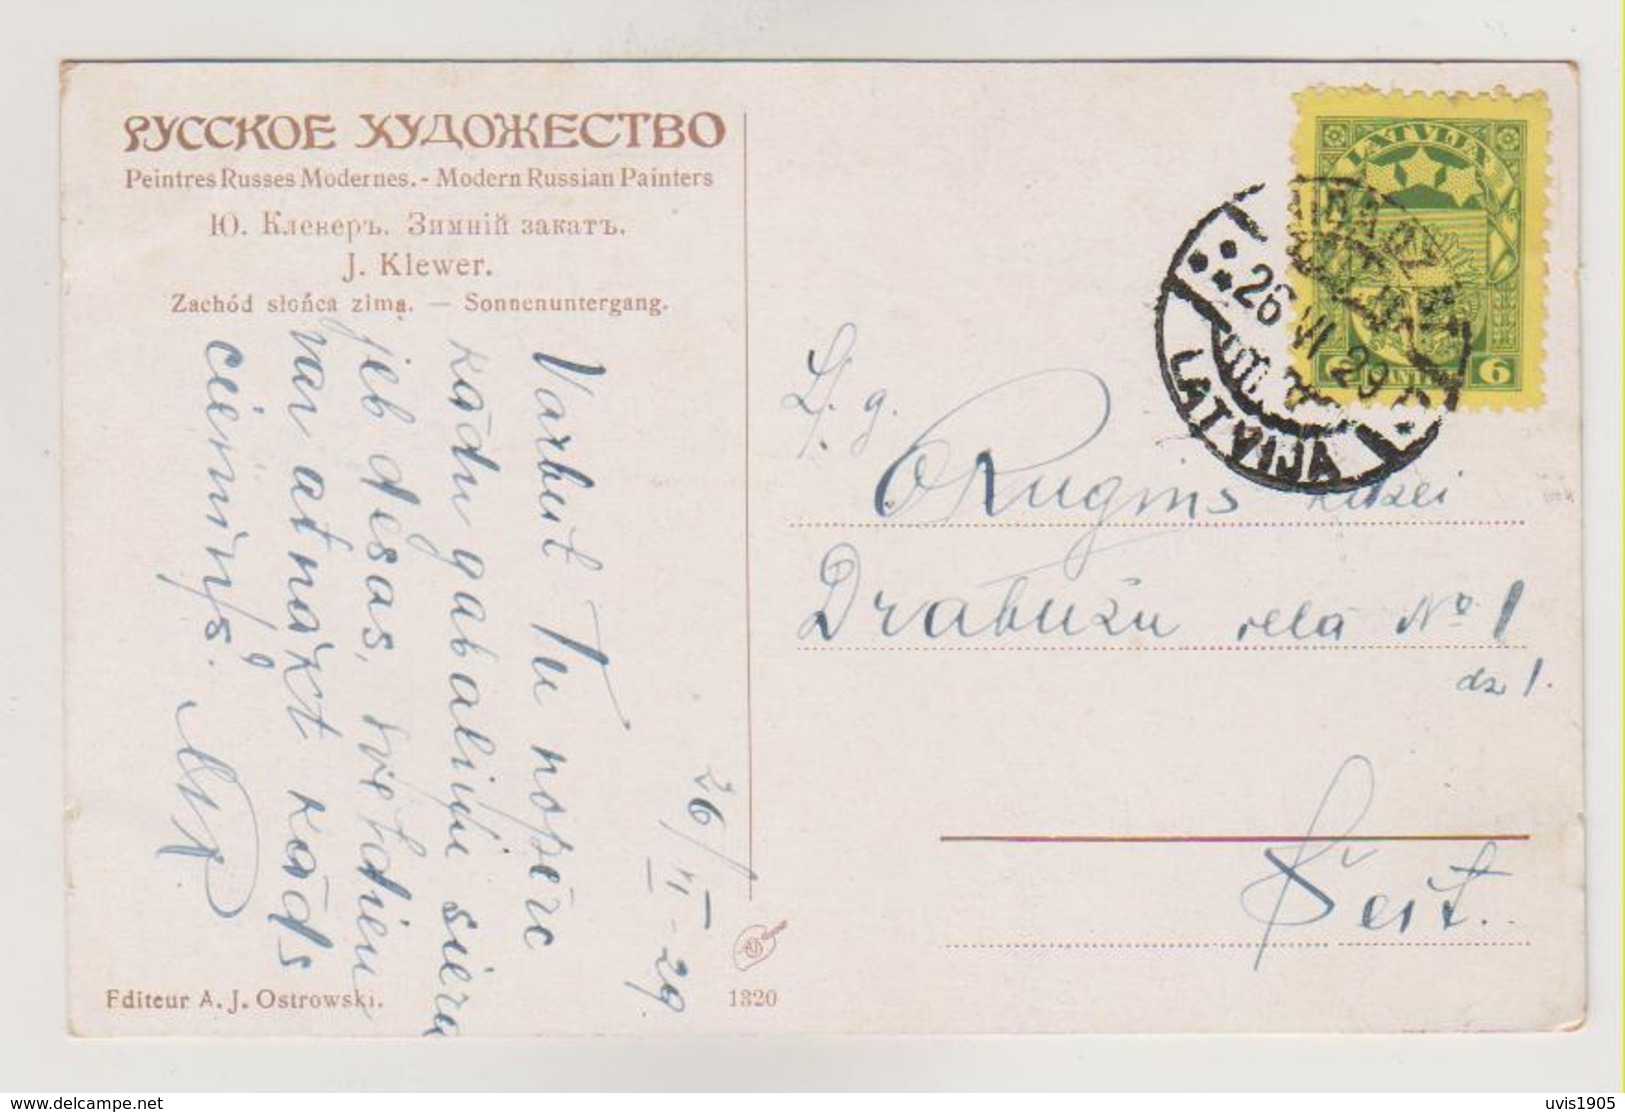 РУССКОЕ ХУДОЖЕСТВО
Peintres Russes Modernes. - Modern Russian Painters
Ю. Клеверъ. Зимній закатъ.
J. Klewer.
Zachód słońca zimą. — Sonnenuntergang.
Varbut Tu nopērc
kādu gabaliņu siera
jeb desas,
var atnākt kāds
ciemiņš.
26/VI-29.
Editeur A. J. Ostrowski.
1320
LATVIJA
6 6
26 VI 29
LATVIJA
L. g.
Rugins kdzei
Drabužu ielā № 1
dz 1.
Šeit.
www.delcampe.net
uvis1905